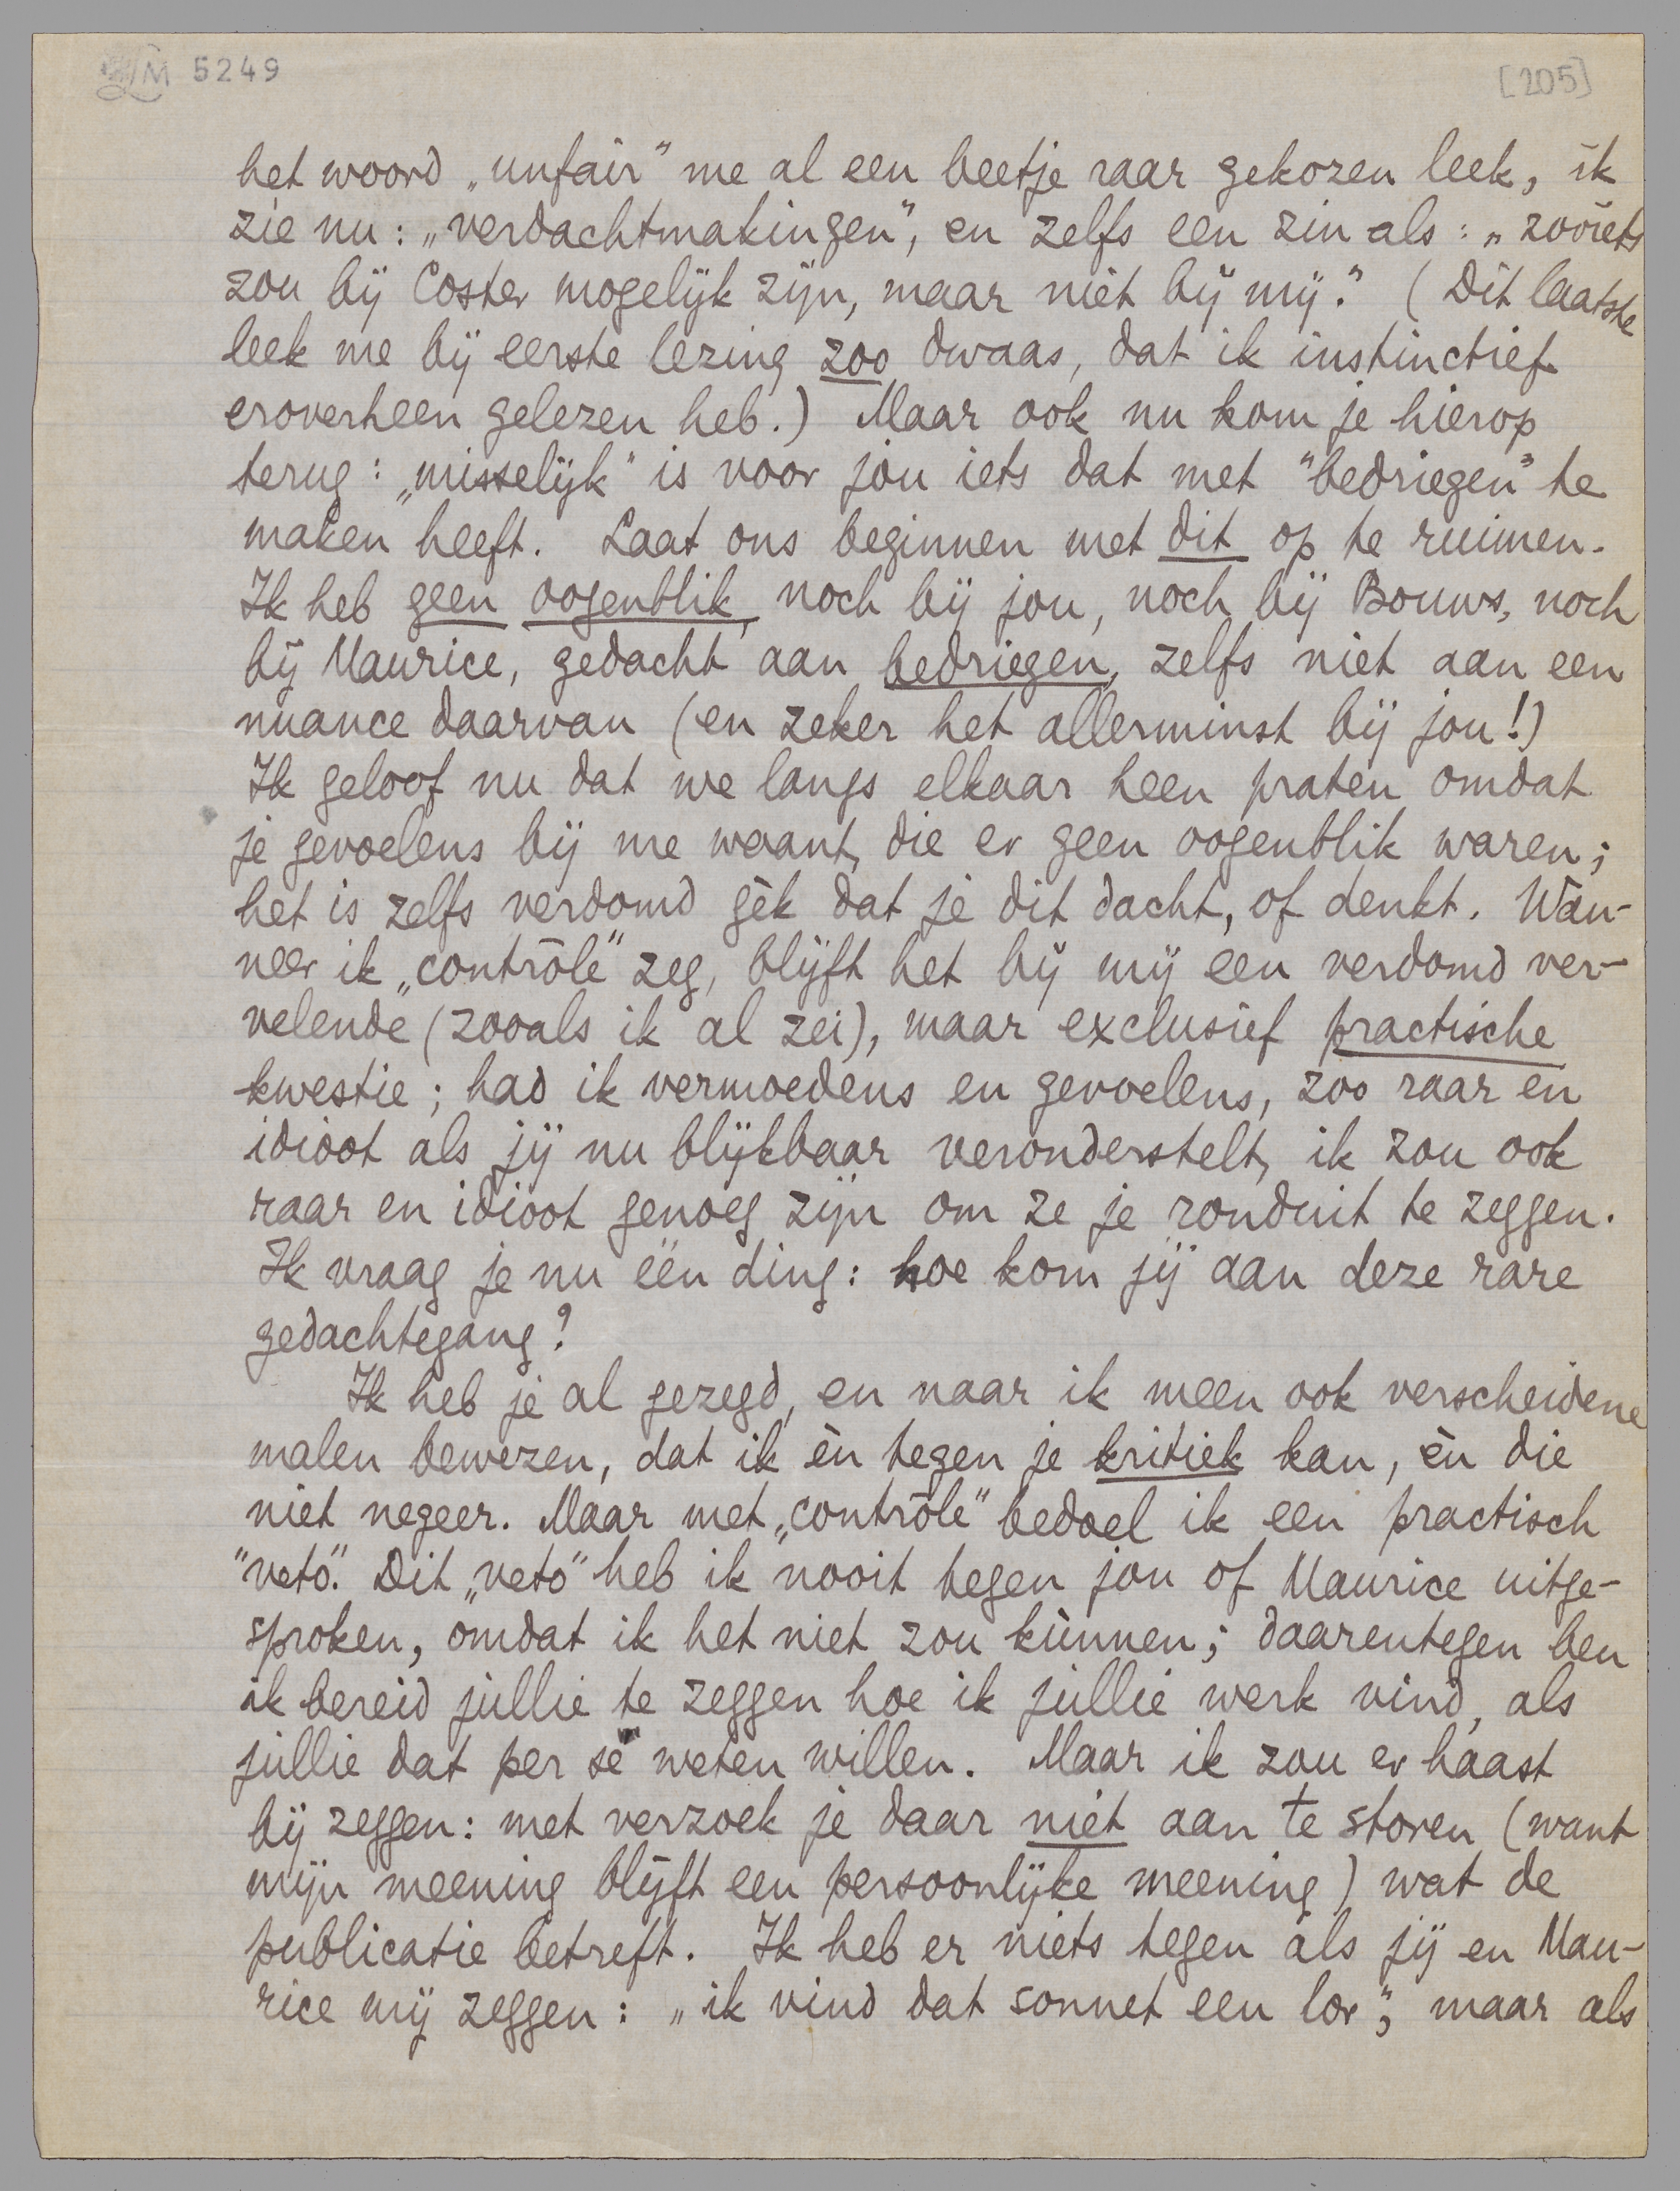 LM 5249
[205]
het woord „unfair” me al een beetje raar gekozen leek, ik
zie nu: „verdachtmakingen”, en zelfs een zin als: „zooiets
zou bij Coster mogelijk zijn, maar niet bij mij.” (Dit laatste
leek me bij eerste lezing zoo dwaas, dat ik instinctief
eroverheen gelezen heb.) Maar ook nu kom je hierop
terug: „misselijk” is voor jou iets dat met "bedriegen" te
maken heeft. Laat ons beginnen met dit op te ruimen.
Ik heb geen oogenblik, noch bij jou, noch bij Bouws, noch
bij Maurice, gedacht aan bedriegen, zelfs niet aan een
nuance daarvan (en zeker het allerminst bij jou!)
Ik geloof nu dat we langs elkaar heen praten omdat
je gevoelens bij me waant, die er geen oogenblik waren;
het is zelfs verdomd gèk dat je dit dacht, of denkt. Wan-
neer ik „contrôle” zeg, blijft het bij mij een verdomd ver-
velende (zooals ik al zei), maar exclusief practische
kwestie; had ik vermoedens en gevoelens, zoo raar en
idioot als jij nu blijkbaar veronderstelt, ik zou ook
raar en idioot genoeg zijn om ze je ronduit te zeggen.
Ik vraag je nu één ding: hoe kom jij aan deze rare
gedachtegang?
Ik heb je al gezegd, en naar ik meen ook verscheidene
malen bewezen, dat ik èn tegen je kritiek kan, èn die
niet negeer. Maar met „contrôle” bedoel ik een practisch
"veto". Dit „veto” heb ik nooit tegen jou of Maurice uitge-
sproken, omdat ik het niet zou kùnnen; daarentegen ben
ik bereid jullie te zeggen hoe ik jullie werk vind, als
jullie dat per se weten willen. Maar ik zou er haast
bij zeggen: met verzoek je daar niet aan te storen (want
mijn meening blijft een persoonlijke meening) wat de
publicatie betreft. Ik heb er niets tegen als jij en Mau-
rice mij zeggen: „ik vind dat sonnet een lor”, maar als